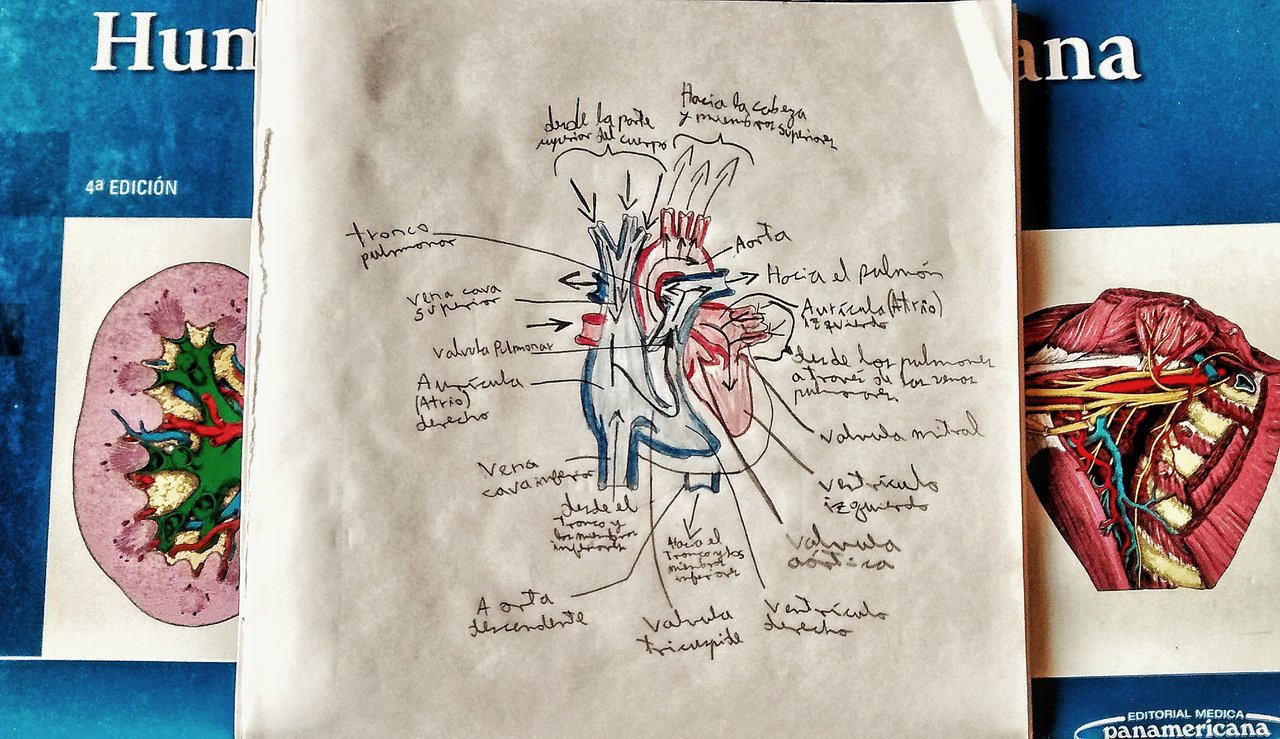 Hum
ana
4ª EDICIÓN
desde la parte
superior del cuerpo
Hacia la cabeza
y miembros superiores
tronco
pulmonar
Aorta
Hacia el pulmón
vena cava
superior
Aurícula (Atrio)
izquierdo
valvula Pulmonar
desde los pulmones
a través de las venas
pulmonares
Aurícula
(Atrio)
derecho
valvula mitral
Vena
cava inferior
ventriculo
izquierdo
desde el
Tronco y
los miembros
inferiores
Hacia el
Tronco y los
miembros
inferiores
Valvula
aórtica
Aorta
descendente
Valvula
tricuspide
ventrículo
derecho
EDITORIAL MEDICA
panamericana